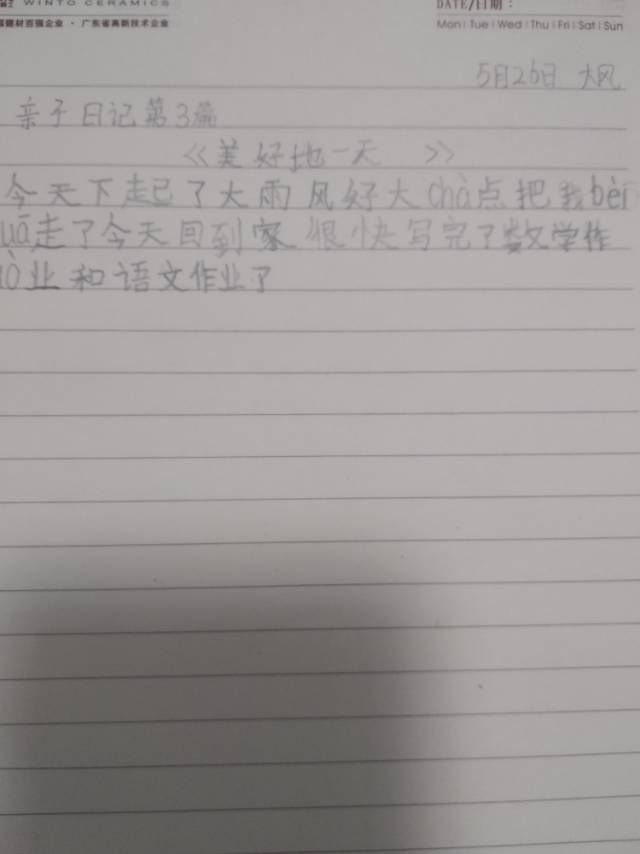 WINTO CERAMICS
建材百强企业 · 广东省高新技术企业
DATE/日期：
Mon | Tue | Wed | Thu | Fri | Sat | Sun
5月26日 大风
亲子日记第3篇
《美好地一天 》
今天下起了大雨风好大chà点把我bèi
uā走了今天回到家很快写完了数学作
业和语文作业了